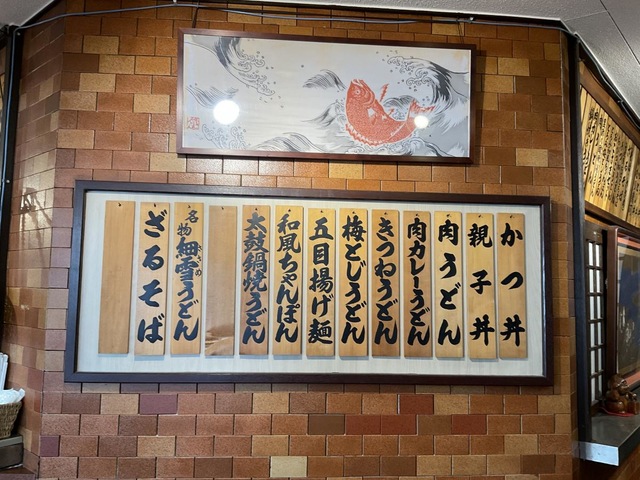 かつ丼
親子丼
肉うどん
肉カレーうどん
きつねうどん
梅とじうどん
五目揚げ麺
和風ちゃんぽん
太鼓鍋焼うどん
名物細雪うどん
ざるそば